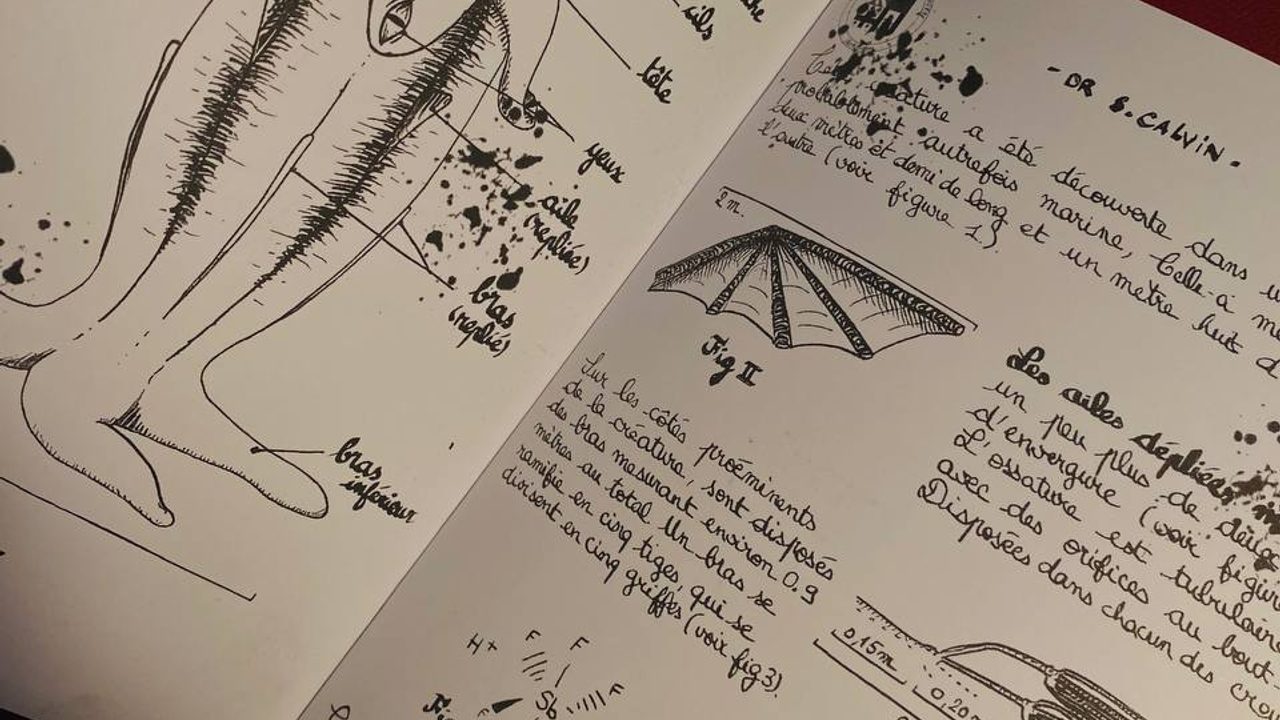 cils
tête
yeux
aile
(repliée)
bras
(replié)
bras
inférieur
- DR S. CALVIN -
créature a été découverte dans
probablement autrefois marine, Celle-ci
deux mètres et demi de long et un mètre huit
l'autre (voir figure 1)
2 m.
Fig II
Les ailes dépliées
un peu plus de deux
d'envergure (voir figure
L'ossature est tubulaire
avec des orifices au bout.
Disposées dans chacun des
Sur les côtés proéminents
de la créature, sont disposés
des bras mesurant environ 0.9
mètres au total. Un bras se
ramifie en cinq tiges, qui se
divisent en cinq griffes (voir fig 3).
0,15m
0,20m
H+
F
F
F
Sb